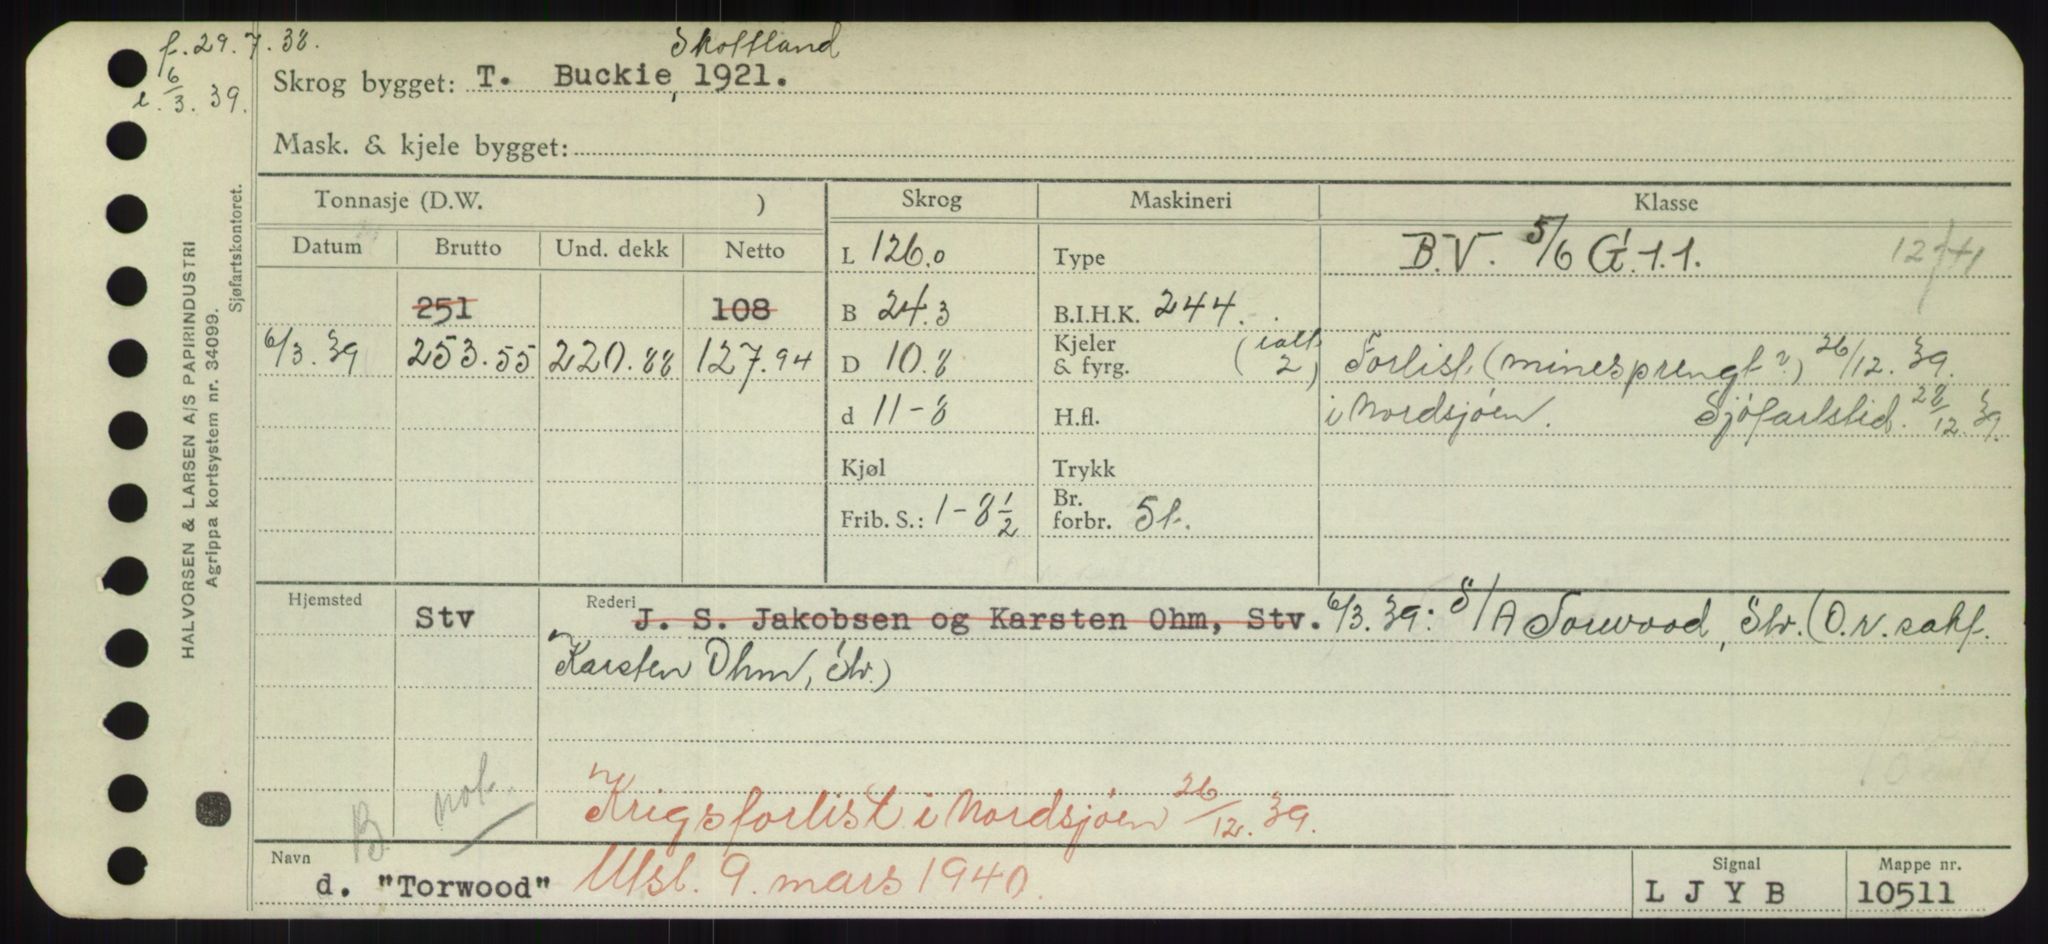 f. 29.7.38.
Skottland
Skrog bygget: T. Buckie, 1921.
6/3. 39.
Mask. & kjele bygget:
HALVORSEN & LARSEN A/S PAPIRINDUSTRI
Agrippa kortsystem nr. 34099.
Sjøfartskontoret.
Tonnasje (D.W. ) Skrog Maskineri Klasse
Datum Brutto Und. dekk Netto L 126.0 Type B.V. 5/6 G.1.1.
251 108 B 24.3 B.I.H.K. 244.
6/3.39 253.55 220.88 127.94 D 10.8 Kjeler & fyrg. (ialt 2) Forlist (minesprengt?) 26/12.39.
d 11-8 H.fl. i Nordsjøen. Sjøfartstid. 28/12.39.
Kjøl Trykk
Frib. S.: 1-8½ Br. forbr. 5 t.
Hjemsted Stv Rederi J. S. Jakobsen og Karsten Ohm, Stv. 6/3.39: S/A Torwood, Stv. (O.v. sakf.
Karsten Ohm, Stv.)
B not.
Krigsforlist i Nordsjøen 26/12.39.
Navn d. "Torwood" Utsl. 9. mars 1940. Signal L J Y B Mappe nr. 10511